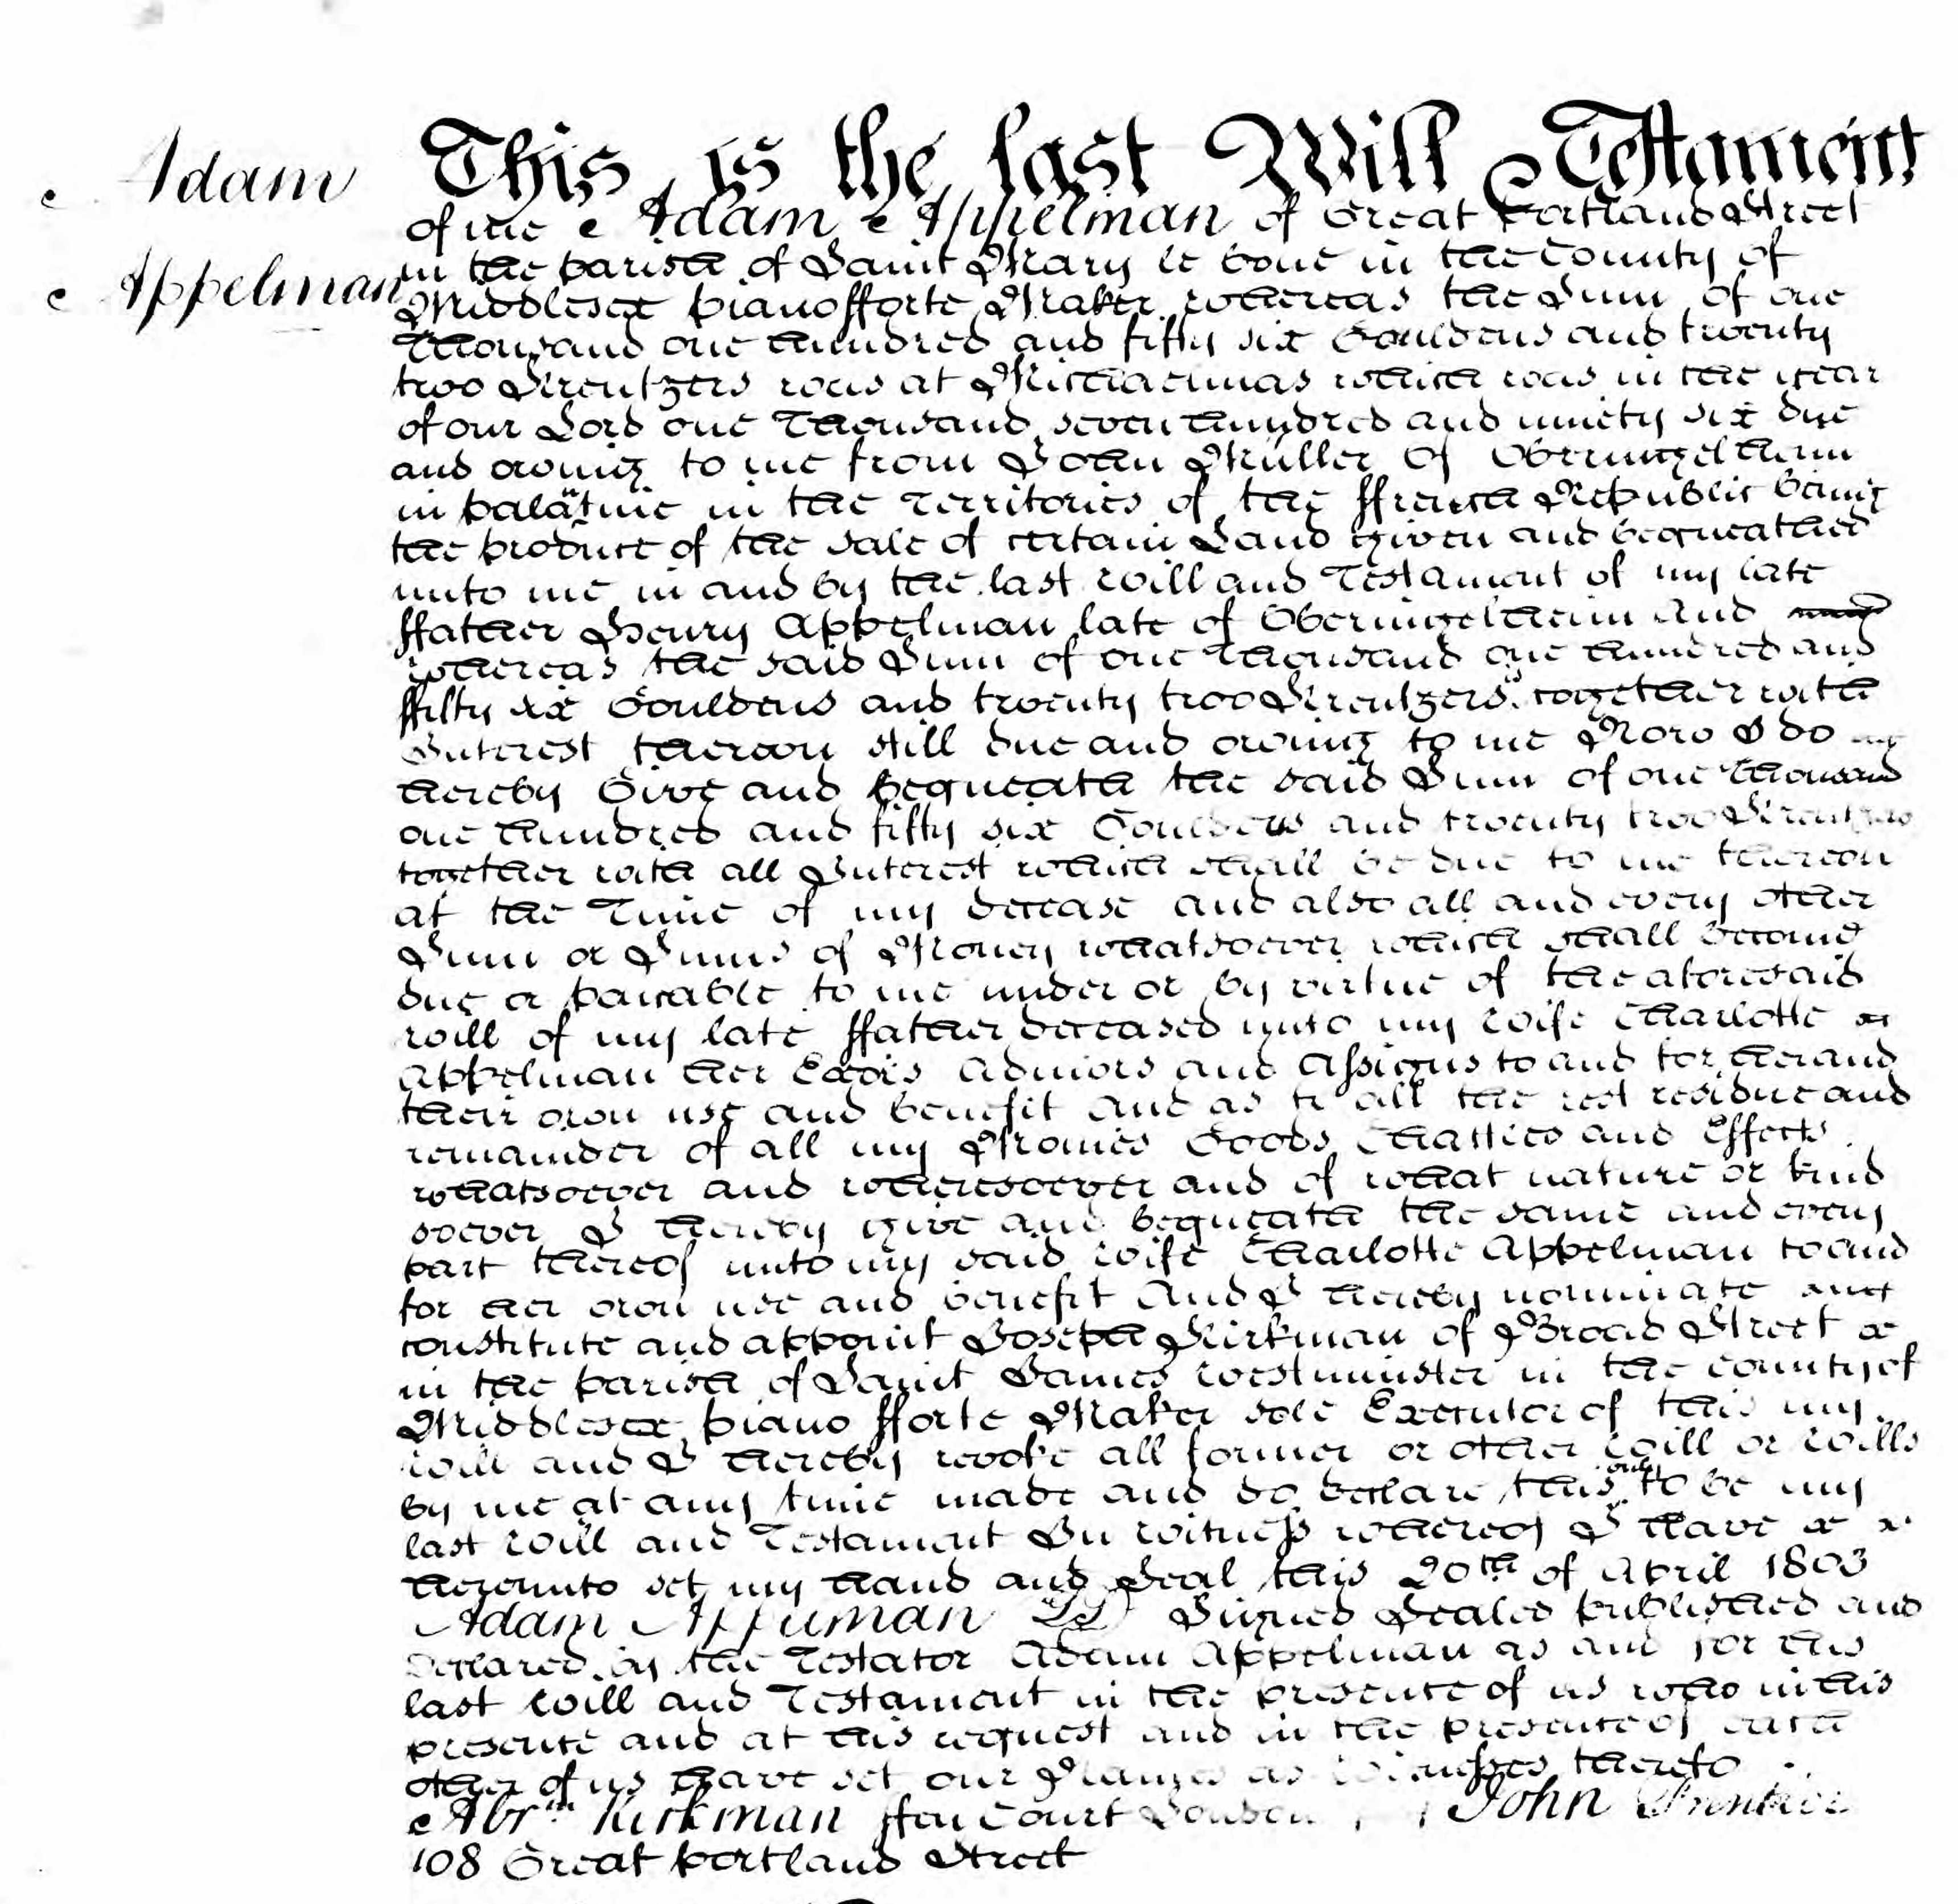 Adam
Appelman
This is the last Will & Testament
of me Adam Appelman of Great Portland Street
in the parish of Saint Mary le bone in the County of
Middlesex piano fforte Maker whereas the Sum of one
Thousand one hundred and fifty six Gouldens and twenty
two Kreutzers was at Michaelmas which was in the year
of our Lord one Thousand seven hundred and ninety six due
and owing to me from John Müller of Oberingelheim
in palatine in the Territories of the ffrench Republic being
the produce of the sale of certain Land given and bequeathed
unto me in and by the last will and Testament of my late
ffather Henry Appelman late of Oberingelheim And
whereas the said Sum of one Thousand one hundred and
ffifty six Gouldens and twenty two Kreutzers together with
Interest thereon still due and owing to me Now I do
hereby Give and Bequeath the said Sum of one Thousand
one hundred and fifty six Gouldens and twenty two Kreutzers
together with all Interest which shall be due to me thereon
at the Time of my decease and also all and every other
Sum or Sums of Money whatsoever which shall become
due or paiable to me under or by virtue of the aforesaid
will of my late ffather deceased unto my wife Charlotte
Appelman her Exōrs Admōrs and Assigns to and for her and
their own use and benefit and as to all the rest residue and
remainder of all my Monies Goods Chattles and Effects
whatsoever and wheresoever and of what nature or kind
soever I hereby give and bequeath the same and every
part thereof unto my said wife Charlotte Appelman to and
for her own use and benefit And I hereby nominate
constitute and appoint Joseph Kirkman of Broad Street
in the parish of Saint James Westminster in the County of
Middlesex piano fforte Maker sole Executor of this my
will and I hereby revoke all former or other will or wills
by me at any time made and do declare this only to be my
last will and Testament In witness whereof I have
hereunto set my hand and Seal this 20th of April 1803
Adam Appelman LS Signed Sealed published and
Declared by the Testator Adam Appelman as and for his
last will and Testament in the presence of us who in his
presence and at his request and in the presence of each
other of us have set our Names as Witnesses thereto
Abrm Kirkman ffen Court London John Prentice
108 Great portland Street